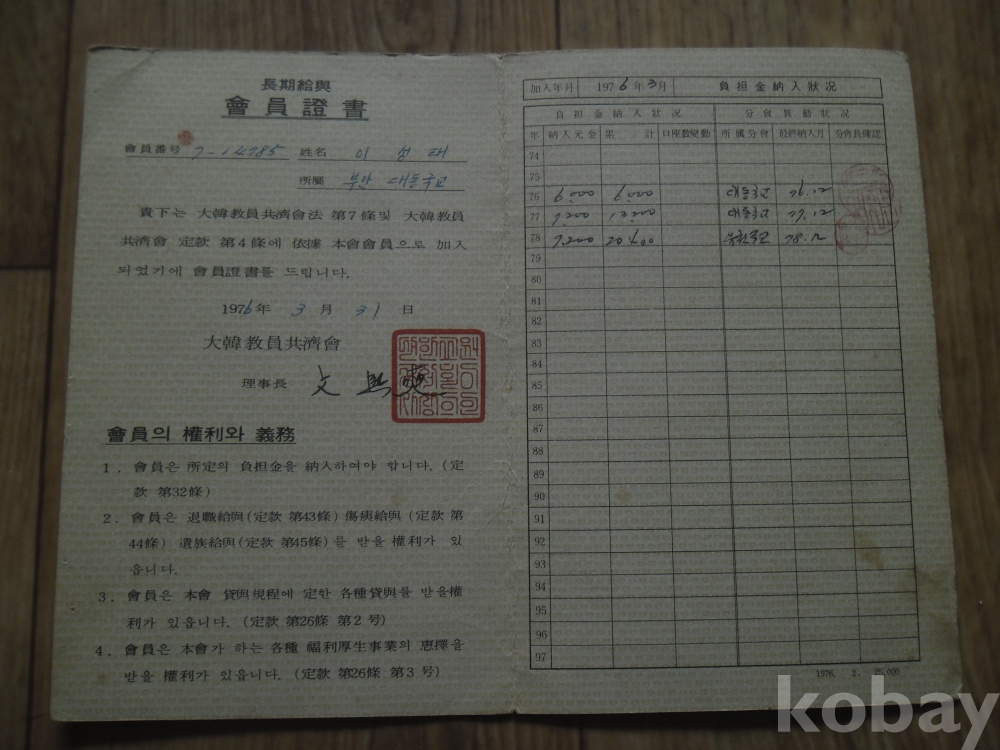 長期給與
會員證書
會員番号 姓名 이
所屬 부안 대동국교
貴下는 大韓教員共濟會法 第7條및 大韓教員
共濟會 定款 第4條에 依據 本會會員으로 加入
되었기에 會員證書를 드립니다.
1976年 3月 31日
大韓教員共濟會
理事長 文
會員의 權利와 義務
1. 會員은 所定의 負担金을 納入하여야 합니다. (定
款 第32條)
2. 會員은 退職給與(定款 第43條) 傷痍給與 (定款 第
44條) 遺族給與(定款 第45條)를 받을 權利가 있
읍니다.
3. 會員은 本會 貸與規程에 定한 各種貸與를 받을權
利가 있읍니다. (定款 第26條 第2号)
4. 會員은 本會가 하는 各種 福利厚生事業의 惠擇을
받을 權利가 있읍니다. (定款 第26條 第3号)
加入年月 1976年3月 負担金納入狀況
負担金納入狀況 分會異動狀況
年 納入元金 累計 口座數變動 所属分會 最終納入月 分會長確認
74
75
76 6,000 6,000 대동국교 76.12
77 7,200 13,200 대동국교 77.12
78 7,200 20,400 78.12
79
80
81
82
83
84
85
86
87
88
89
90
91
92
93
94
95
96
97
1976. 2. 25,000
kobay